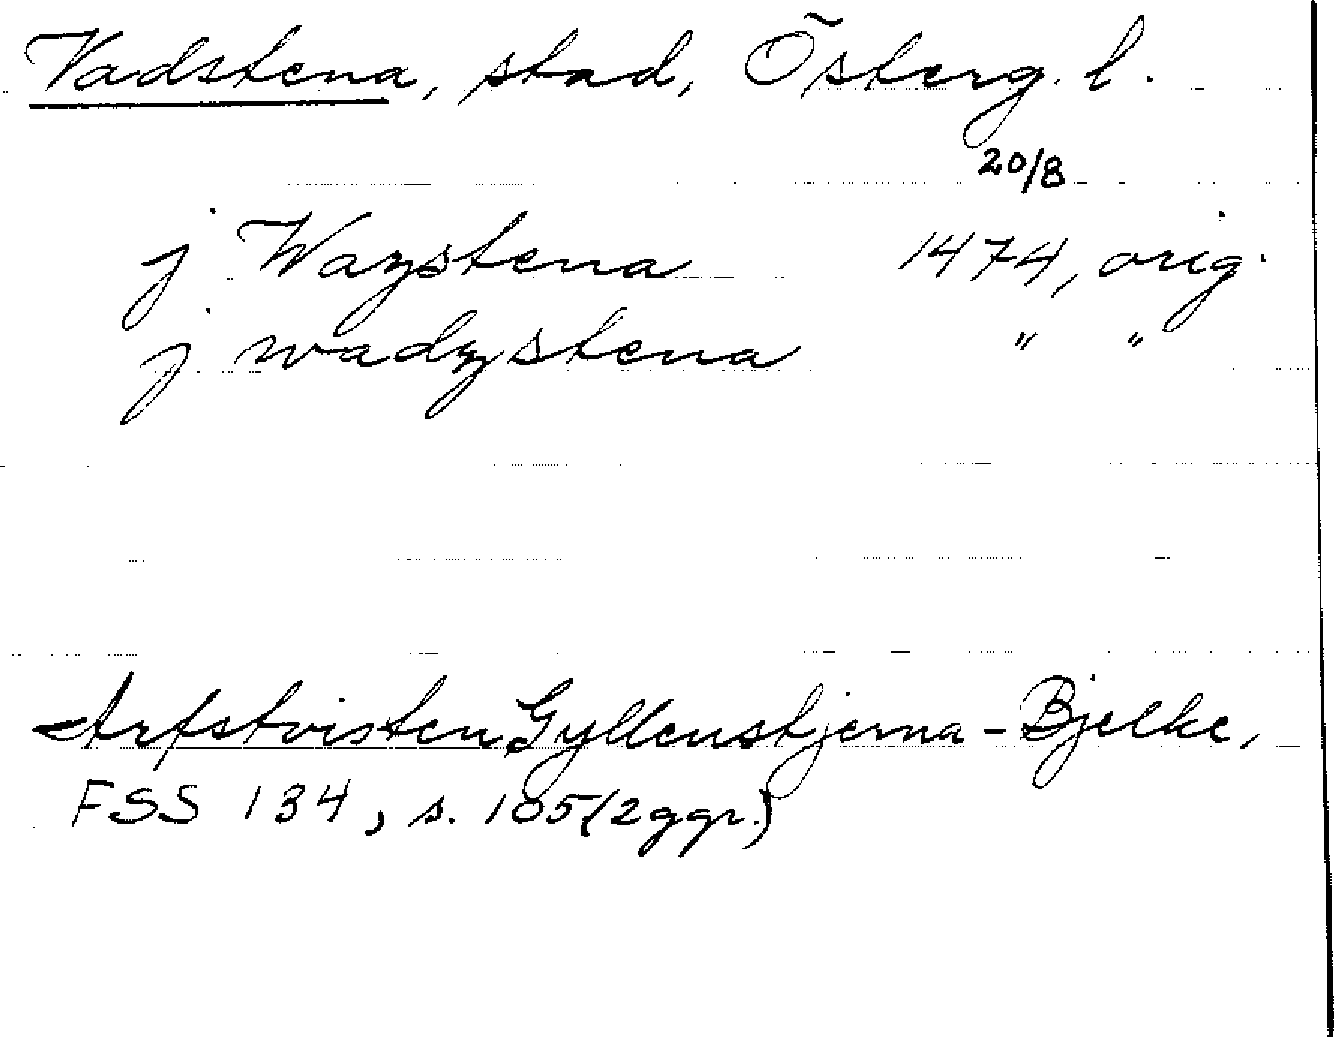 Vadstena, stad, Österg. l.
20/8
j Wazstena 1474, orig.
j wadzstena " "
Arfstvisten Gyllenstjerna - Bjelke,
FSS 134, s. 105 (2 ggr.)